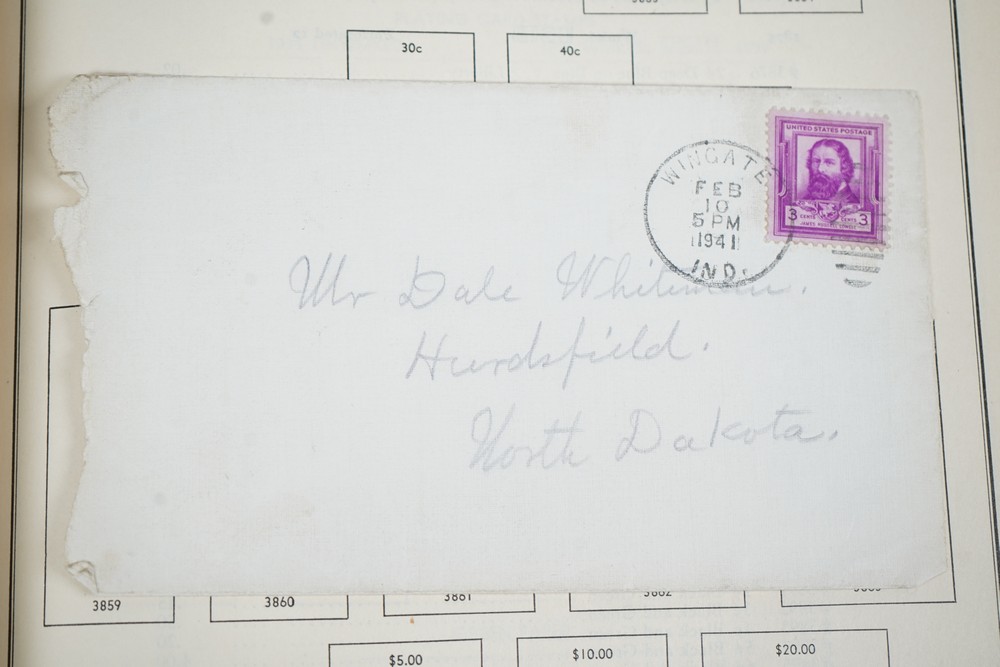 30c
40c
UNITED STATES POSTAGE
WINGATE
FEB
10
5 PM
1941
IND.
3 CENTS CENTS 3
JAMES RUSSELL LOWELL
Mr Dale Whiteman.
Hurdsfield.
North Dakota.
3859
3860
3861
3862
$5.00
$10.00
$20.00